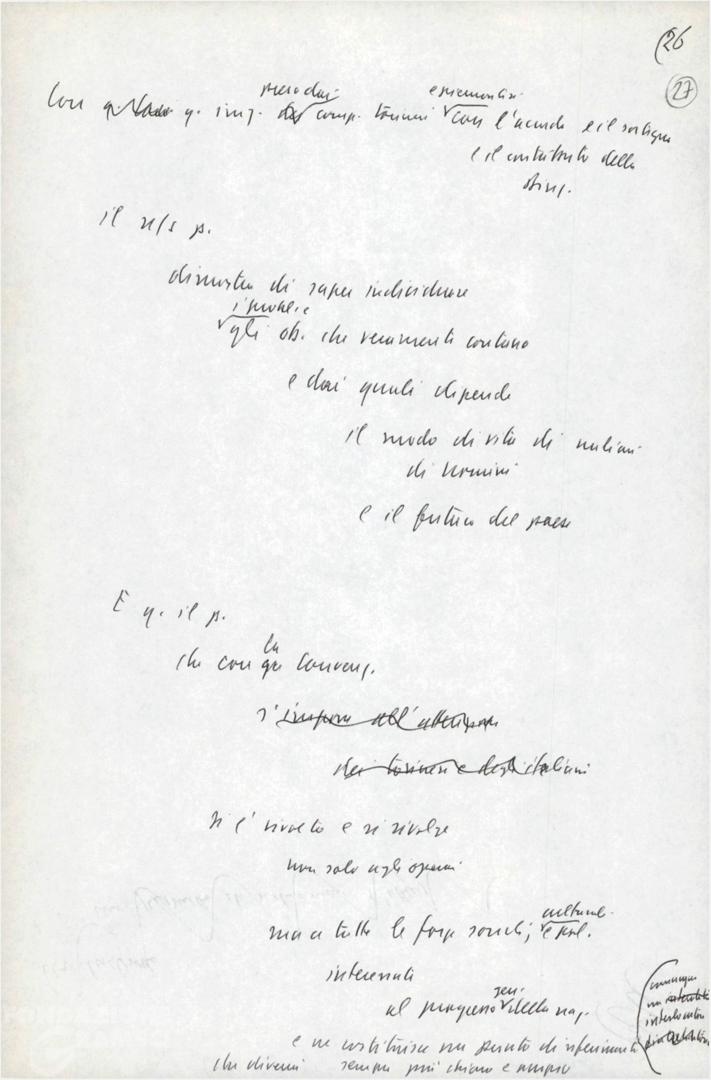 (26
27
presa dai esponenti
Con q. iniz. comp. torinesi con l'accordo e il sostegno
e il contributo della
direz.
il n/s p.
dimostra di saper individuare
i probl. e
gli ob. che veramente contano
e dai quali dipende
il modo di vita di milioni
di uomini
e il futuro del paese
E q. il p.
la
che con q. Convenz.
s'impone all'attenzione
dei torinesi e degli italiani
si è rivolto e si rivolge
non solo agli operai
cultural.
ma a tutte le forze sociali, e pol.
interessati
gen.
al progresso della naz.
e ne costituisce un punto di riferimento
che diventi sempre più chiaro e ampio
comunque
un
interlocutore